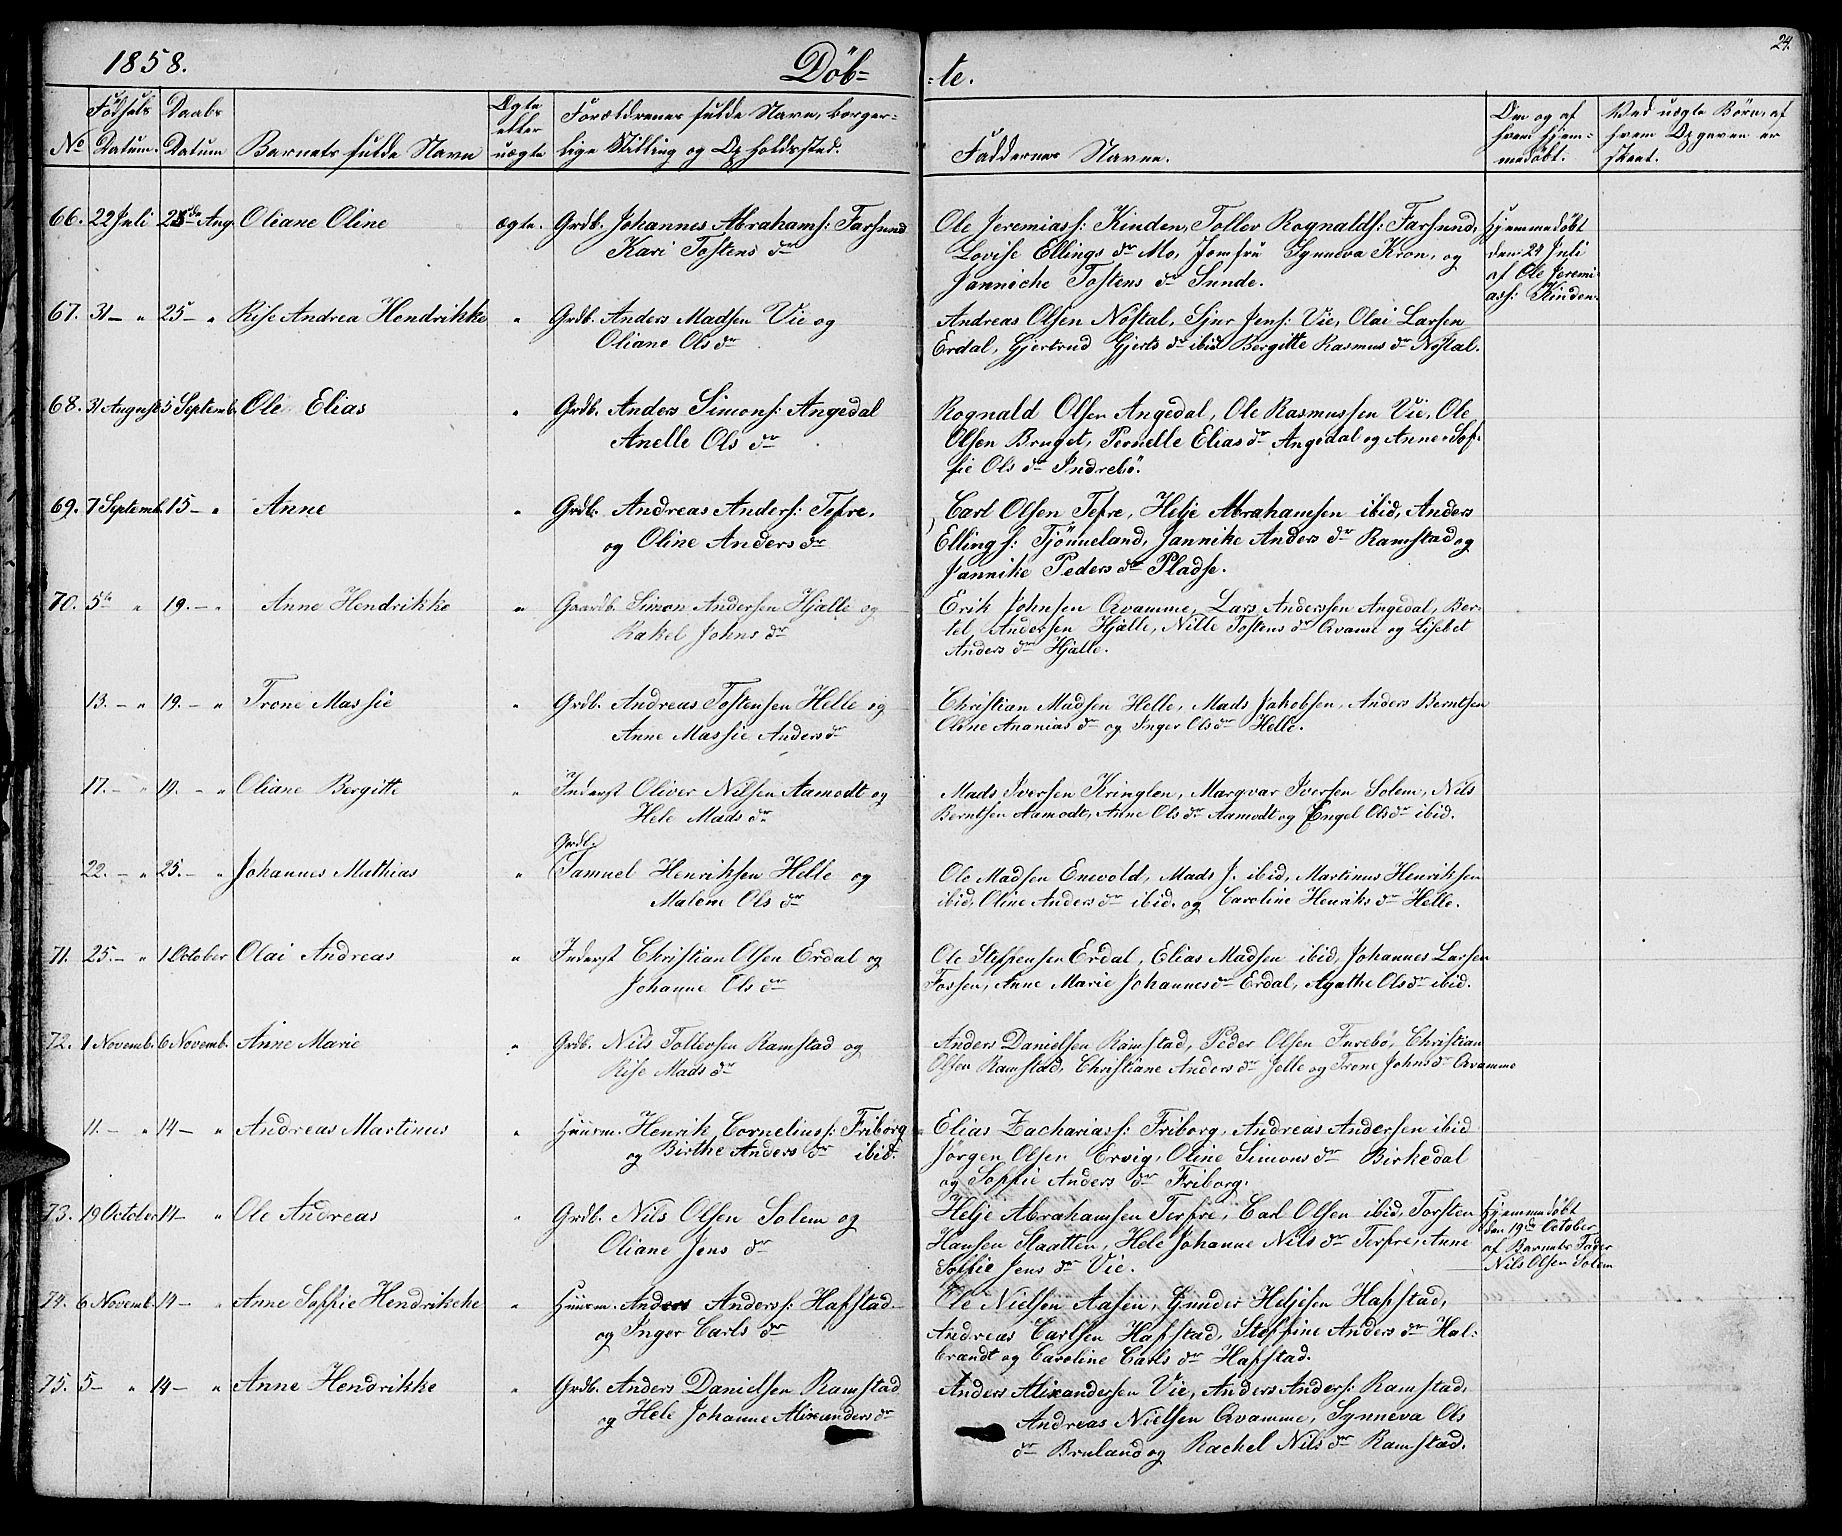 1858.
Döb-
-te.
24.
No
Fødsels Datum.
Daabs Datum
Barnets fulde Navn
Ægte eller uægte
Forældrenes fulde Navn, borger-
lige Stilling og Opholdssted.
Faddernes Navne.
Om og af hvem hjem-
medøbt.
Ved uægte Børn, af
hvem Opgaven er
skeet.
66. 22 Juli 25de Aug. Oliane Oline ægte. Grdb. Johannes Abrahams: Farsund
Kari Tostens dr
Ole Jeremiass: Kinden, Tollev Rognalds: Farsund,
Lovise Ellings dr Mo, Jomfru Synneva Kron, og
Janniche Tostens dr Sunde.
Hjemmedöbt
den 24 Juli
af Ole Jeremi-
ass: Kinden.
67. 31 - " 25 - " Rise Andrea Hendrikke " Grdb. Anders Madsen Vie og
Oliane Ols dr
Andreas Olsen Nøstal, Sjur Jens: Vie, Olai Larsen
Erdal, Gjertrud Gjerts dr ibid Bergitte Rasmus dr Nøstal.
68. 31 August 5 Septemb. Ole Elias " Grdb. Anders Simons: Angedal
Anelle Ols dr
Rognald Olsen Angedal, Ole Rasmussen Vie, Ole
Olsen Bruget, Pernelle Elias dr Angedal og Anne Sof-
fie Ols dr Indrebö.
69. 7 Septemb. 15 - " Anne " Grdb. Andreas Anders: Tefre,
og Oline Anders dr
Carl Olsen Tefre, Helje Abrahamsen ibid, Anders
Ellings: Tjönneland, Jannike Anders dr Ramstad og
Jannike Peders dr Pladse.
70. 5te " 19. - " Anne Hendrikke " Gaardb. Simon Andersen Hjalle og
Rakel Johns dr
Erik Johnsen Qvamme, Lars Anderssen Angedal, Ber-
tel Andersen Hjalle, Nille Tostens dr Qvame og Lisebet
Anders dr Hjalle.
13. - " 19. - " Trone Massie " Grdb. Andreas Tostensen Helle og
Anne Massie Anders dr
Christian Madsen Helle, Mads Jakobsen, Anders Berntsen
Oldne Ananias dr og Inger Ols dr Helle.
17. - " 19. - " Oliane Bergitte " Inderst Oliver Nilsen Aamodt og
Hele Mads dr
Mads Iversen Kringlen, Margvar Iversen Solem, Nils
Berntsen Aamodt, Anne Ols dr Aamodt og Engel Ols dr ibid.
22. - " 25. - " Johannes Mathias " Grdb.
Samuel Henriksen Helle og
Malene Ols dr
Ole Madsen Enevold, Mads J. ibid, Martinus Henriksen
ibid, Oline Anders dr ibid. og Caroline Henriks dr Helle.
71. 25. - " 1 October Olai Andreas " Inderst Christian Olsen Erdal og
Johanne Ols dr
Ole Steffensen Erdal, Elias Madsen ibid, Johannes Larsen
Fossen, Anne Marie Johannes dr Erdal, Agathe Ols dr ibid.
72. 1 Novemb. 6 Novemb. Anne Marie " Grdb. Nils Tollevsen Ramstad og
Rise Mads dr
Anders Danielsen Ramstad, Peder Olsen Furebö, Christian
Olsen Ramstad, Christiane Anders dr Jelle og Trone Johns dr Qvamme
11. - " 14 - " Andreas Martinus " Huusm. Henrik Cornelius: Friborg
og Birthe Anders dr ibid.
Elias Zacharias: Friborg, Andreas Andersen ibid
Jörgen Olsen Ervig, Oline Simons dr Birkedal
og Soffie Anders dr Friborg.
73. 19 October 14 - " Ole Andreas " Grdb. Nils Olsen Solem og
Oliane Jens dr
Helje Abrahamsen Terfre, Carl Olsen ibid, Torsten
Hansen Slaatten, Hele Johanne Nils dr Terfre, Anne
Soffie Jens dr Vie.
Hjemmedöbt
den 19de October
af Barnets Fader
Nils Olsen Solem
74. 6 Novemb. 14 - " Anne Soffie Hendrikke " Huusm. Anders Anderss: Hafstad
og Inger Carls dr
Ole Nielsen Aasen, Gunder Heljesen Hafstad,
Andreas Carlsen Hafstad, Steffine Anders dr Hal-
brandt og Caroline Carls dr Hafstad.
75. 5 - " 14 - " Anne Hendrikke " Grdb. Anders Danielsen Ramstad
og Hele Johanne Alixanders dr
Anders Alixandersen Vie, Anders Anders: Ramstad,
Andreas Nielsen Qvamme, Synneva Ols
dr Bruland og Rachel Nils dr Ramstad.